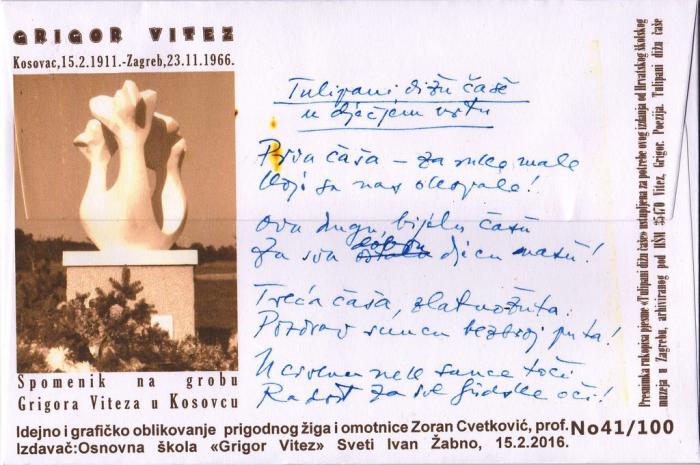 GRIGOR VITEZ
Kosovac,15.2.1911.-Zagreb,23.11.1966.
Tulipani dižu čaše
u dječjem vrtu
Prva čaša – za ruke male
Koji su nas okopale!
Ovu drugu, bijelu čašu
Za svu dobru djecu našu!
Treća čaša, zlatnožuta.
Pozdrav suncu bezbroj puta!
U crvenu nek sunce toči
Radost za sve ljudske oči!
Spomenik na grobu
Grigora Viteza u Kosovcu
Preuzimka rukopisa pjesme «Tulipani dižu čaše» ustupljena za potrebe ovog izdanja od Hrvatskog školskog
muzeja u Zagrebu, arhiviranog pod HŠM 35470 Vitez, Grigor. Poezija. Tulipani dižu čaše
Idejno i grafičko oblikovanje prigodnog žiga i omotnice Zoran Cvetković, prof. No41/100
Izdavač:Osnovna škola «Grigor Vitez» Sveti Ivan Žabno, 15.2.2016.